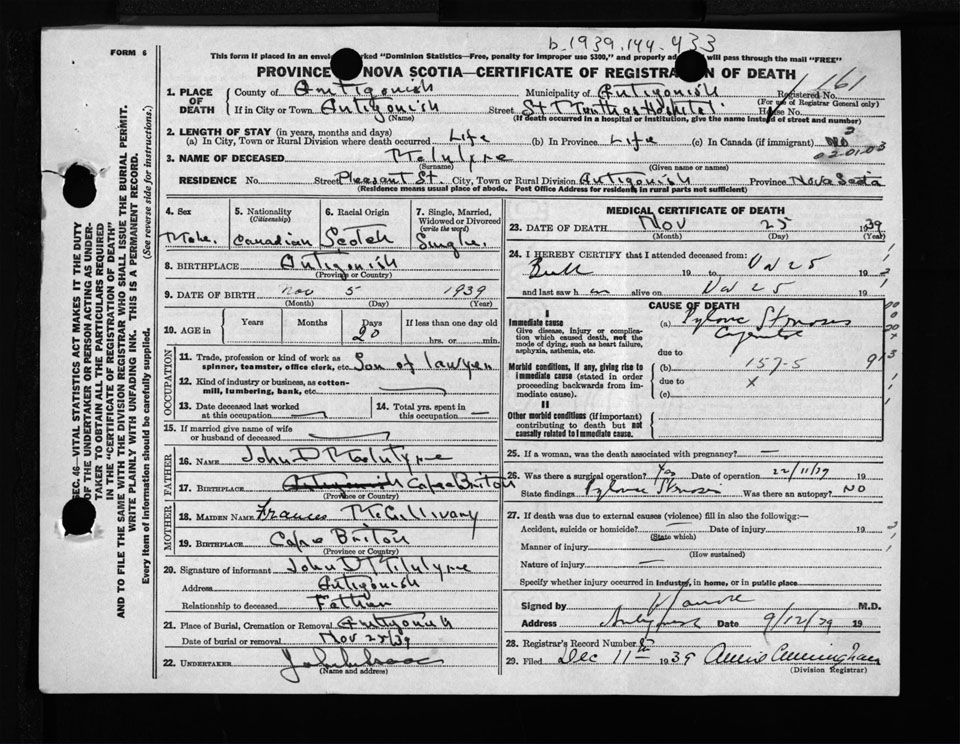 b.1939.144.433
FORM 6
This form if placed in an envelope marked "Dominion Statistics—Free, penalty for improper use $300," and properly addressed will pass through the mail "FREE"
PROVINCE OF NOVA SCOTIA—CERTIFICATE OF REGISTRATION OF DEATH
161
1. PLACE OF DEATH County of Antigonish Municipality of Antigonish Registered No.
(For use of Registrar General only)
If in City or Town Antigonish Street St. Martha's Hospital House No.
(Name) (If death occurred in a hospital or institution, give the name instead of street and number)
2. LENGTH OF STAY (in years, months and days)
(a) In City, Town or Rural Division where death occurred Life (b) In Province Life (c) In Canada (if immigrant)
020103
3. NAME OF DECEASED McIntyre
(Surname) (Given name or names)
RESIDENCE No. Street Pleasant St. City, Town or Rural Division Antigonish Province Nova Scotia
(Residence means usual place of abode. Post Office Address for residents in rural parts not sufficient)
4. Sex 5. Nationality (Citizenship) 6. Racial Origin 7. Single, Married, Widowed or Divorced (write the word)
Male. Canadian Scotch Single.
8. BIRTHPLACE Antigonish
(Province or Country)
9. DATE OF BIRTH Nov 5 1939
(Month) (Day) (Year)
10. AGE in Years Months Days If less than one day old
20 hrs. or min.
OCCUPATION
11. Trade, profession or kind of work as spinner, teamster, office clerk, etc. Son of lawyer
12. Kind of industry or business, as cotton-mill, lumbering, bank, etc.
13. Date deceased last worked at this occupation
14. Total yrs. spent in this occupation
15. If married give name of wife or husband of deceased
FATHER
16. NAME John D McIntyre
17. BIRTHPLACE Antigonish Cape Briton
(Province or Country)
MOTHER
18. MAIDEN NAME Frances McGillivary
19. BIRTHPLACE Cape Briton
(Province or Country)
20. Signature of informant John D McIntyre
Address Antigonish
Relationship to deceased Father
21. Place of Burial, Cremation or Removal Antigonish
Date of burial or removal Nov 25/39
22. UNDERTAKER
(Name and address)
MEDICAL CERTIFICATE OF DEATH
23. DATE OF DEATH Nov 25 1939
(Month) (Day) (Year)
24. I HEREBY CERTIFY that I attended deceased from:
Birth 19 to Nov 25 19
and last saw h im alive on Nov 25 19
CAUSE OF DEATH
I
Immediate cause
Give disease, injury or complication which caused death, not the mode of dying, such as heart failure, asphyxia, asthenia, etc.
(a) Pyloric Stenosis
due to
Morbid conditions, if any, giving rise to immediate cause (stated in order proceeding backwards from immediate cause).
(b) 157-5
due to x
(c)
II
Other morbid conditions (if important) contributing to death but not causally related to immediate cause.
25. If a woman, was the death associated with pregnancy?
26. Was there a surgical operation? Yes Date of operation 22/11/39 19
State findings Pyloric Stenosis Was there an autopsy? NO
27. If death was due to external causes (violence) fill in also the following:—
Accident, suicide or homicide? Date of injury 19
(State which)
Manner of injury
(How sustained)
Nature of injury
Specify whether injury occurred in industry, in home, or in public place
Signed by M.D.
Address Antigonish Date 9/12/39 19
28. Registrar's Record Number
29. Filed Dec 11th 1939 Annie Cunningham
(Division Registrar)
SEC. 46—VITAL STATISTICS ACT MAKES IT THE DUTY
OF THE UNDERTAKER OR PERSON ACTING AS UNDER-
TAKER TO OBTAIN ALL THE PARTICULARS REQUIRED
IN THE "CERTIFICATE OF REGISTRATION OF DEATH"
AND TO FILE THE SAME WITH THE DIVISION REGISTRAR WHO SHALL ISSUE THE BURIAL PERMIT.
WRITE PLAINLY WITH UNFADING INK. THIS IS A PERMANENT RECORD.
Every item of information should be carefully supplied. (See reverse side for instructions.)